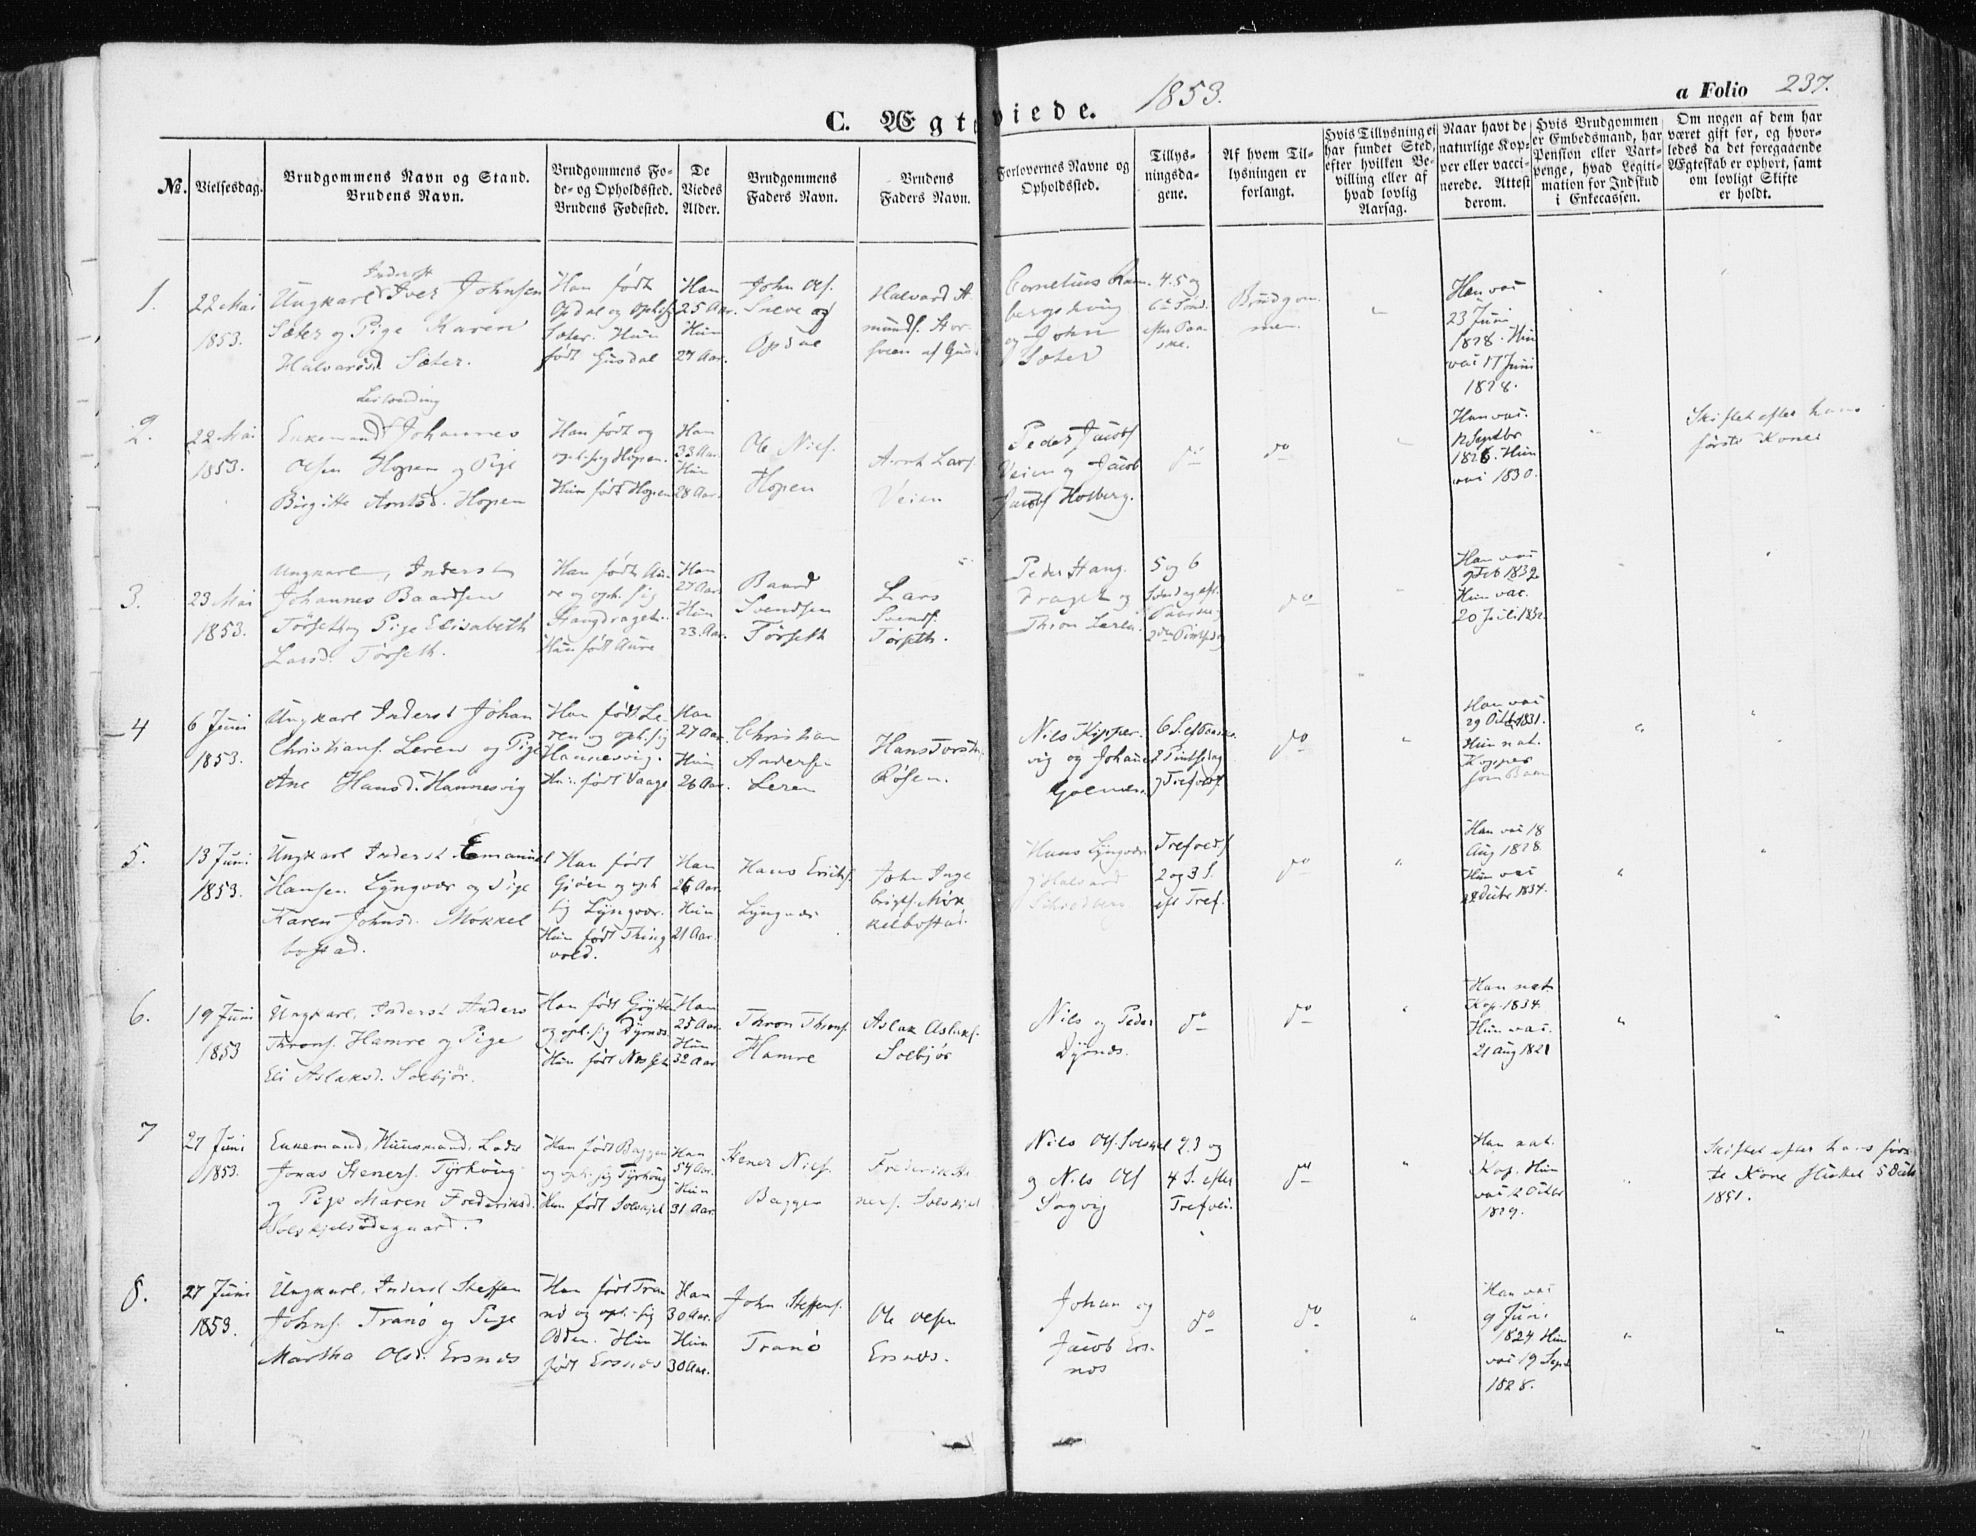 C. Ægteviede. 1853. a Folio 237.
№.
Vielsesdag.
Brudgommens Navn og Stand.
Brudens Navn.
Brudgommens Fø-
de- og Opholdssted.
Brudens Fødested.
De
Viedes
Alder.
Brudgommens
Faders Navn.
Brudens
Faders Navn.
Forlovernes Navne og
Opholdssted.
Tillys-
ningsda-
gene.
Af hvem Til-
lysningen er
forlangt.
Hvis Tillysning ei
har fundet Sted,
efter hvilken Be-
villing eller af
hvad lovlig
Aarsag.
Naar havt de
naturlige Kop-
per eller vacci-
nerede. Attest
derom.
Hvis Brudgommen
er Embedsmand, har
Pension eller Vart-
penge, hvad Legiti-
mation for Indskud
i Enkecassen.
Om nogen af dem har
været gift før, og hvor-
ledes da det foregaaende
Ægteskab er ophørt, samt
om lovligt Skifte
er holdt.
1.
22 Mai
1853.
Inderst
Ungkarl Iver Johnsen
Sæter og Pige Karen
Halvorsd. Sæter.
Han født
Opdal og oph. sig
Sæter. Hun
født Gusdal
Han
25 Aar.
Hun
27 Aar.
John Ols.
Opdal
Halvard A.
munds.
Cornelius Ram
bergshaug
og John
Sæter
4. 5 og
6te Sønd.
efter Paa-
ske.
Brudgom
men
Han vac
23 Juni
1828. Hun
vac 17 Juni
1828.
2.
22 Mai
1853.
Enkemand Johannes
Olsen Hopen og Pige
Birgitte Arntsd. Hopen
Han født og
oph. sig Hopen.
Hun født Hopen
Han
33 Aar.
Hun
28 Aar.
Ole Niels.
Hopen
Arnt Lars.
Veien
Peder Jacobs
Veien og Jacob
Jacobs Holberg.
do
do
Han vac.
12 Septbr
1826. Hun
vac 1830.
Skiftet efter hans
første Kone
3.
23 Mai
1853.
Ungkarl, Inderst
Johannes Baardsen
Tørset og Pige Elisabeth
Larsd. Tørseth.
Han født Au
re og oph. sig
Stangdraget.
Hun født Aure
Han
27 Aar.
Hun
23 Aar.
Baard
Svendsen
Tørseth
Lars
Svends.
Tørseth.
Peder Stang
draget og
Thron Leren
5 og 6
Søndag eft.
Paaske
2den Pintsedag
do
Han vac
9 Feb 1832
Hun vac.
20 Juli 1832.
4
6 Juni
1853.
Ungkarl Inderst Johan
Christians. Leren og Pige
Ane Hansd. Hannesvig
Han født Le-
ren og oph. sig
Hannesvig.
Hun født Vaage
Han
27 Aar.
Hun
26 Aar.
Christian
Anders.
Leren
Hans Torst.
Røsen.
Nils Kipper.
vig og Johan
6 S. eft Paaske.
2 Pintsedag
og Trefoldf.
do
Han vac
29 Oct 1831.
Hun nat.
Kopper
som Barn
5.
13 Juni
1853.
Ungkarl Inderst Emanuel
Hansen Lyngvær og Pige
Karen Johnsd. Mokkel
bostad.
Han født
Giøen og oph
sig Lyngvær.
Hun født Thing
vold.
Han
26 Aar.
Hun
21 Aar.
Hans Erichs.
Lyngvær
John Inge
brigts. Møk
kelbostad.
Hans Lyngvær
og Halvard
Trefoldf
2 og 3 S.
eft Tref.
do
Han vac 18
Aug 1828
Hun vac
28 Decbr 1834.
6.
19 Juni
1853
Ungkarl, Inderst Anders
Throns. Hamre og Pige
Eli Aslaksd. Solbjør.
Han født Grytten
og oph. sig Dyrnes.
Hun født Nesset
Han
25 Aar.
Hun
32 Aar
Thron Throns.
Hamre
Aslak Aslaks.
Solbjør
Nils og Peder
Dyrnes.
do
do
Han nat
Kop. 1834.
Hun vac.
21 Aug 1821
7
27 Juni
1853.
Enkemand, Huusmand, Lods
Jonas Steners. Tyrhoug
og Pige Maren Frederiksd.
Solskjelsødegaard.
Han født Baggen
og oph. sig Tyrhoug
Hun født Solskjel
Han
54 Aar.
Hun
31 Aar.
Stener Niels.
Baggen
Frederik St
ners. Solskjel
Nils Ols. Solskjel
og Nils Ols
Sogvig
2. 3 og
4 S. efter
Trefold.
do
Han nat.
Kop. Hun
vac 2 Octbr
1829.
Skiftet efter hans førs-
te Kone sluttet 5 Decbr
1851.
8.
27 Juni
1853.
Ungkarl, Inderst Steffen
Johns. Tranø og Pige
Martha Olsd. Ersnes
Han født Tra
nø og oph. sig
Odden. Hun
født Ersnes
Han
30 Aar.
Hun
30 Aar.
John Steffens.
Tranø
Ole Olsen
Ersnes.
Johan og
Jacob Ers-
nes
do
do
Han vac
9 Juni
1824 Hun
vac 19 Sept
1828.